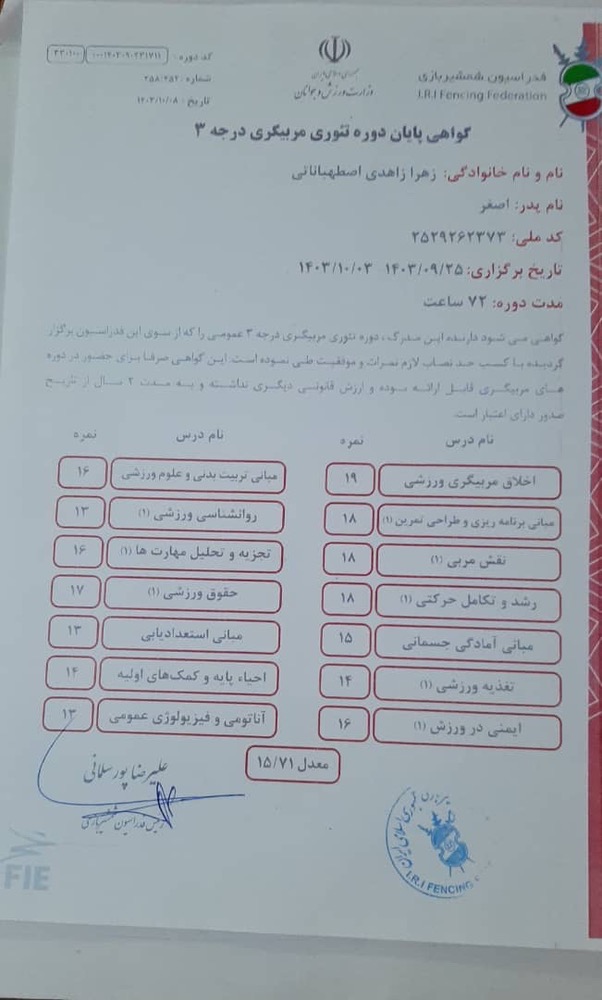 فدراسیون شمشیربازی
I.R.I Fencing Federation
جمهوری اسلامی ایران
وزارت ورزش و جوانان
کد دوره :
۳۳۰۱۰۰
شماره : ۲۵۸:۲۵۲
تاریخ : ۱۴۰۳/۱۰/۰۸
گواهی پایان دوره تئوری مربیگری درجه ۳
نام و نام خانوادگی: زهرا زاهدی اصطهباناتی
نام پدر: اصغر
کد ملی: ۲۵۲۹۲۶۲۳۷۳
تاریخ برگزاری: ۱۴۰۳/۰۹/۲۵ ۱۴۰۳/۱۰/۰۳
مدت دوره: ۷۲ ساعت
گواهی می شود دارنده این مدرک، دوره تئوری مربیگری درجه ۳ عمومی را که از سوی این فدراسیون برگزار
گردیده با کسب حد نصاب لازم نمرات و موفقیت طی نموده است. این گواهی صرفا برای حضور در دوره
های مربیگری قابل ارائه بوده و ارزش قانونی دیگری نداشته و به مدت ۲ سال از تاریخ
صدور دارای اعتبار است.
نام درس نمره نام درس نمره
اخلاق مربیگری ورزشی ۱۹ مبانی تربیت بدنی و علوم ورزشی ۱۶
مبانی برنامه ریزی و طراحی تمرین (۱) ۱۸ روانشناسی ورزشی (۱) ۱۳
نقش مربی (۱) ۱۸ تجزیه و تحلیل مهارت ها (۱) ۱۶
رشد و تکامل حرکتی (۱) ۱۸ حقوق ورزشی (۱) ۱۷
مبانی آمادگی جسمانی ۱۵ مبانی استعدادیابی ۱۳
تغذیه ورزشی (۱) ۱۴ احیاء پایه و کمک‌های اولیه ۱۴
ایمنی در ورزش (۱) ۱۶ آناتومی و فیزیولوژی عمومی ۱۳
معدل ۱۵/۷۱
علیرضا پورسلمانی
رئیس فدراسیون شمشیربازی
جمهوری اسلامی ایران
I.R.I FENCING
FIE